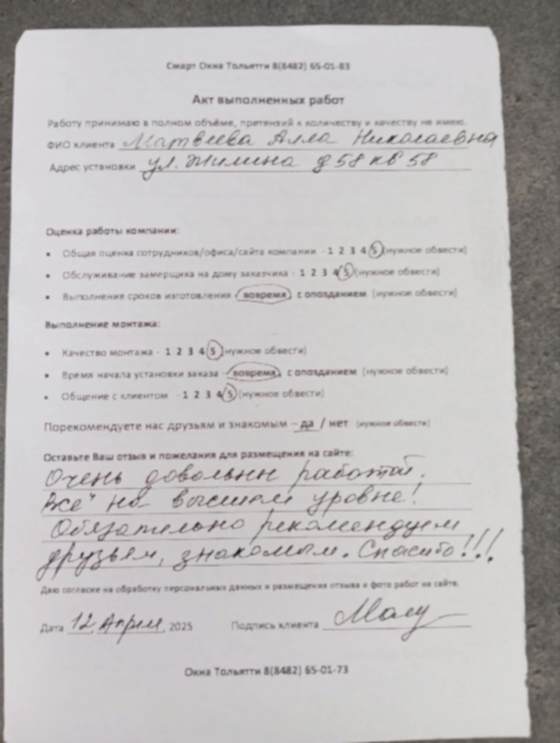 Смарт Окна Тольятти 8(8482) 65-01-83
Акт выполненных работ
Работу принимаю в полном объёме, претензий к количеству и качеству не имею.
ФИО клиента Матвеева Алла Николаевна
Адрес установки ул. Жилина д 58 кв 58
Оценка работы компании:
• Общая оценка сотрудников/офиса/сайта компании - 1 2 3 4 5 (нужное обвести)
• Обслуживание замерщика на дому заказчика - 1 2 3 4 5 (нужное обвести)
• Выполнения сроков изготовления - вовремя, с опозданием (нужное обвести)
Выполнение монтажа:
• Качество монтажа - 1 2 3 4 5 (нужное обвести)
• Время начала установки заказа - вовремя, с опозданием (нужное обвести)
• Общение с клиентом - 1 2 3 4 5 (нужное обвести)
Порекомендуете нас друзьям и знакомым – да / нет (нужное обвести)
Оставьте Ваш отзыв и пожелания для размещения на сайте:
Очень довольны работой.
Всё на высшем уровне!
Обязательно рекомендуем
друзьям, знакомым. Спасибо!!!
Даю согласие на обработку персональных данных и размещения отзыва и фото работ на сайте.
Дата 12 Апреля 2025 Подпись клиента
Окна Тольятти 8(8482) 65-01-73